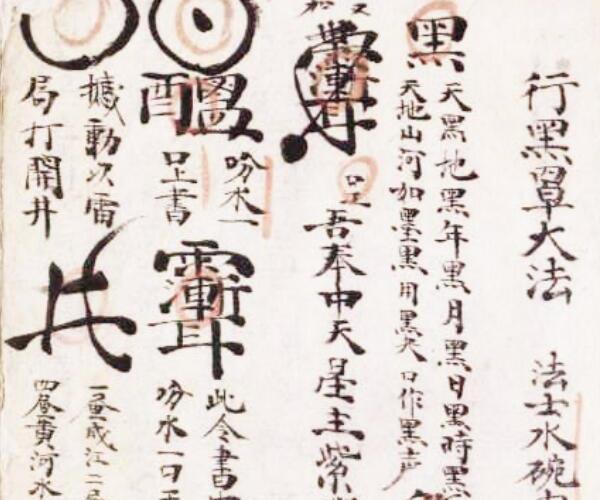 行黑罩大法 法士水碗
黑
天黑地黑年黑月黑日黑時黑
天地山河如墨黑用黑犬口作黑声
口上
吾奉中天星主紫
吩水一
口上書
此令書
吩水一口
撼動次雷
局打開井
一昼成江二
四昼黄河水